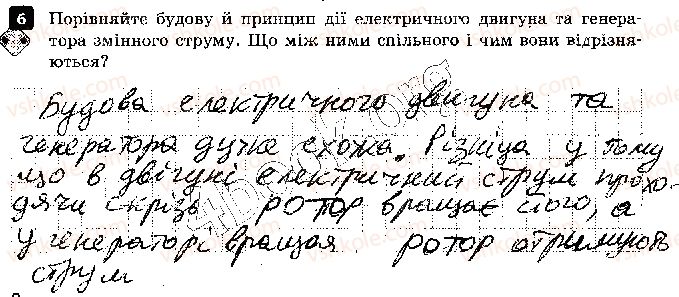 6 Порівняйте будову й принцип дії електричного двигуна та генера-
тора змінного струму. Що між ними спільного і чим вони відрізня-
ються?
Будова електричного двигуна та
генератора дуже схожа. Різніца у тому
що в двігуні електричний струм прохо-
дячи скрізь ротор вращає його, а
у генераторі вращая ротор отримують
струм